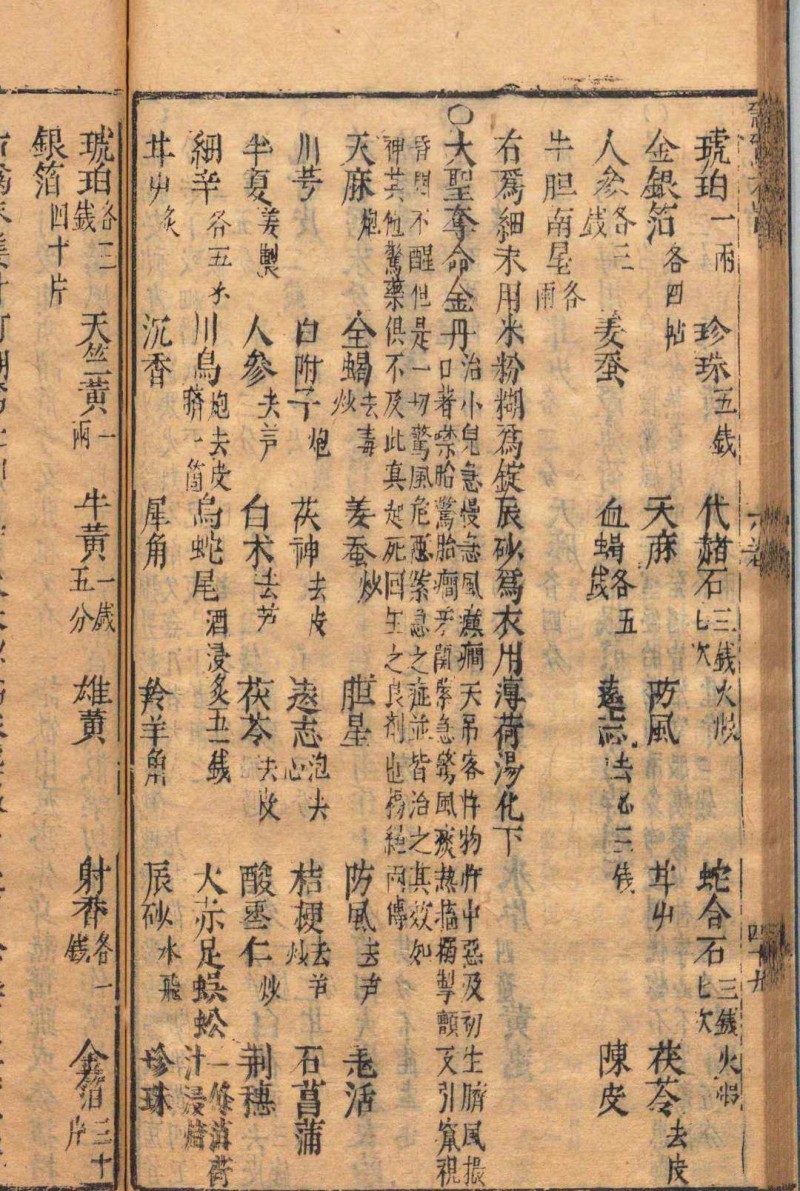 琥珀一兩 珍珠五錢 代赭石三錢火煅七次 蛇合石三錢火煅七次
金銀箔各四帖 天麻 防風 甘艸 茯苓去皮
人參各三錢 姜蚕 血蝎各五錢 遠志去心三錢 陳皮
牛胆南星各兩
右爲細末用水粉糊爲錠辰砂爲衣用薄荷湯化下
○大聖奪命金丹治小兒急慢急風癲癇天吊客忤物忤中惡及初生臍風撮口著噤胎驚胎癇牙關緊急驚風痰熱搐搦掣顫反引竄視
昏悶不醒但是一切驚風危惡緊急之症並皆治之其效如神其他驚藥俱不及此真起死回生之良劑也
天麻炮 全蝎去毒炒 姜蚕炒 胆星 防風去芦 羌活
川芎 白附子炮 茯神去皮 遠志泡去心 桔梗去芦炒 石菖蒲
半夏姜製 人參去芦 白术去芦 茯苓去皮 酸棗仁炒 荆穗
細辛各五錢 川烏炮去皮臍一箇 烏蛇尾酒浸炙五錢 大赤足蜈蚣一條薄荷汁浸焙
甘艸炙 沉香 犀角 羚羊角 辰砂水飛 珍珠
琥珀各三錢 天竺黃一兩 牛黃一錢五分 雄黃 射香各一錢 金箔三十片
銀箔四十片